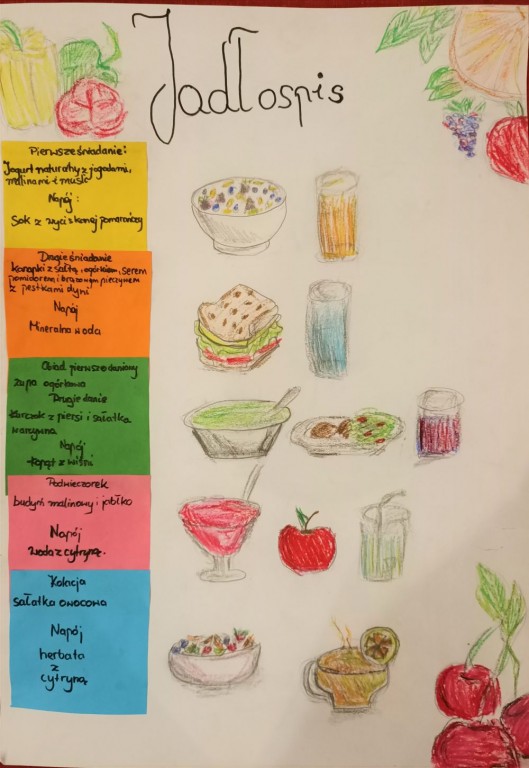 Jadłospis
Pierwsze śniadanie:
Jogurt naturalny z jagodami,
malinami i musli
Napój:
Sok z wyciskanej pomarańczy
Drugie śniadanie
Kanapki z sałtą, ogórkiem, serem
pomidorem i brązowym pieczywem
z pestkami dyni
Napój
Mineralna woda
Obiad pierwsze daniany
zupa ogórkowa
Drugie danie
kurczak z piersi i sałatka
warzywna
Napój
Kompot z wiśni
Podwieczorek
budyń malinowy i jabłko
Napój
woda z cytryną.
Kolacja
sałatka owocowa
Napój
herbata
z
cytryną